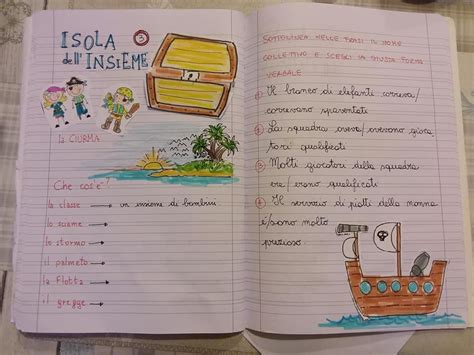 ISOLA 3
dell'INSIEME
la CIURMA
Che cos'è?
la classe → un insieme di bambini
lo sciame →
lo stormo →
il palmeto →
la flotta →
il gregge →
SOTTOLINEA NELLE FRASI IL NOME
COLLETTIVO E SCEGLI LA GIUSTA FORMA
VERBALE
1 Il branco di elefanti correva/
correvano spaventati
2 La squadra aveva/avevano gioca
tori qualificati
3 Molti giocatori della squadra
era/erano qualificati
4 Il servizio di piatti della nonna
è/sono molto
prezioso.